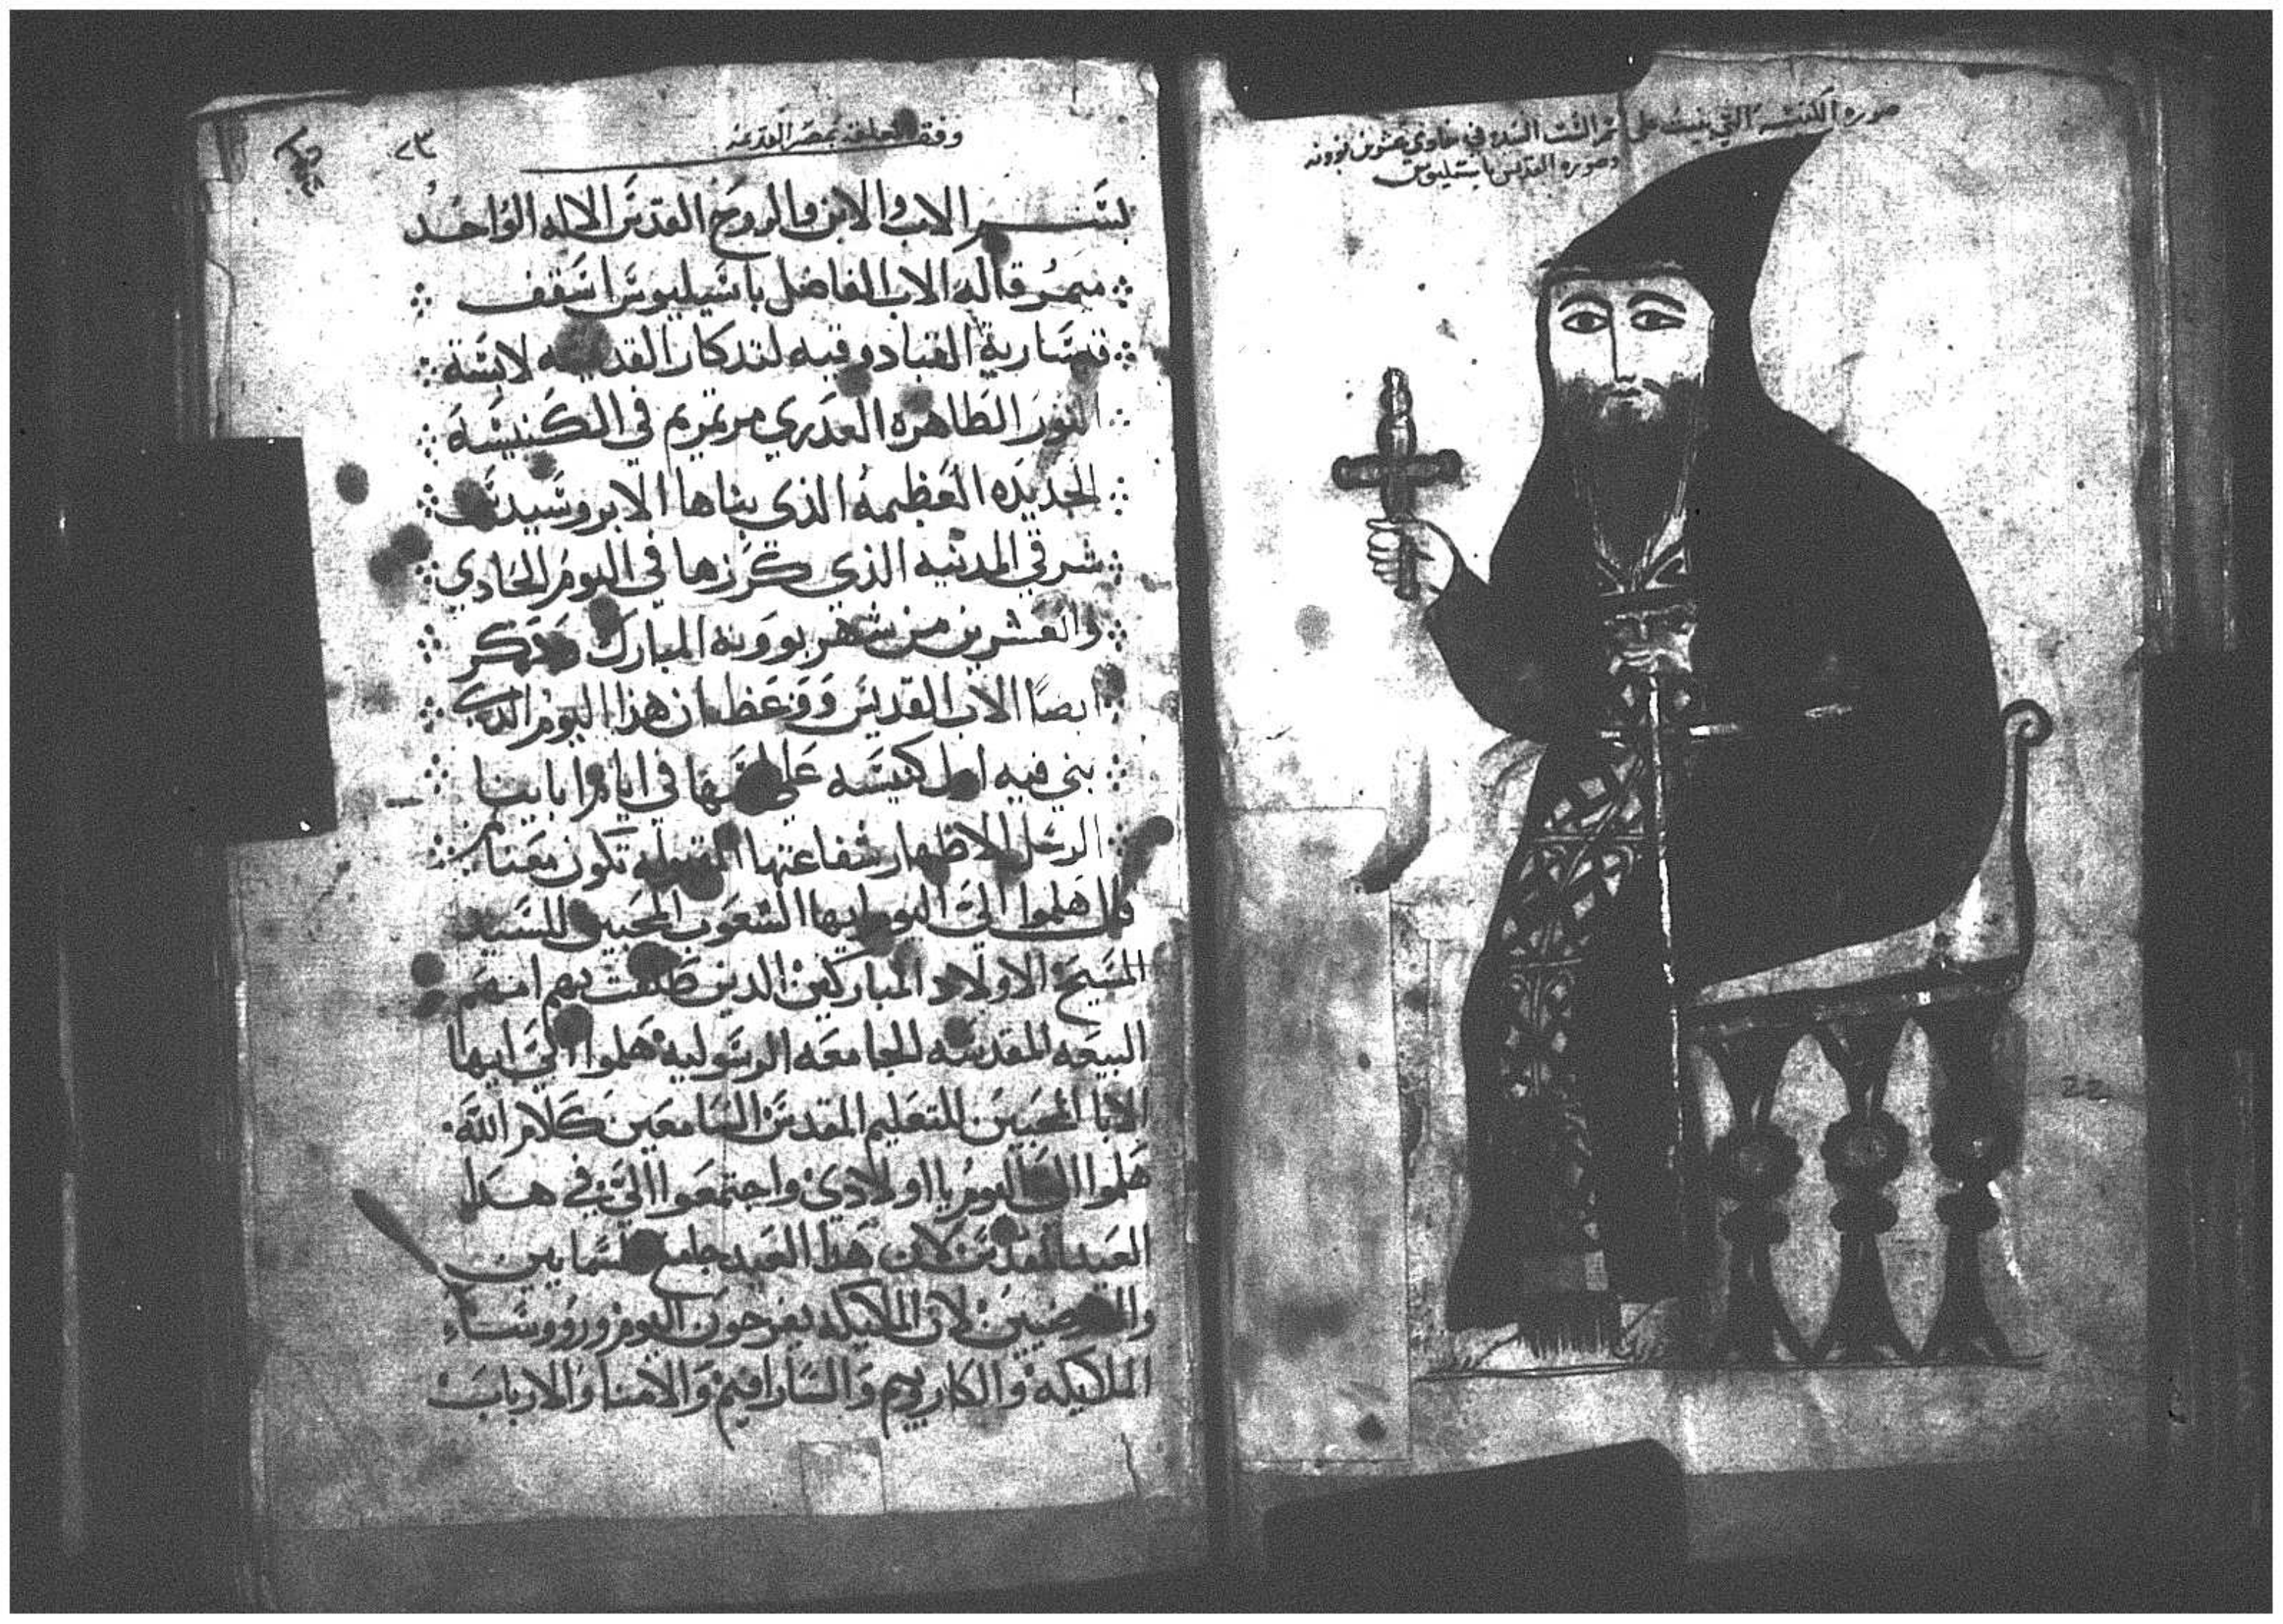 صوره الكنيسه التي بنيت على اسم الست السيده في حادي عشرين بوونه
وصوره القديس باسيليوس
وقف المعلقه بمصر القديمه
بسم الاب والابن والروح القدس الاله الواحد
ميمر قاله الاب الفاضل باسيليوس اسقف
قيسارية القبادوقيه لتدكار القديسه لابسة
النور الطاهره العدري مرتمريم في الكنيسه
الجديده العظيمه الذي بناها الابروسيدس
شرقي المدينه الذي كرزها في اليوم الحادي
والعشرين من شهر بوونه المبارك وذكر
ايضا الاب القديس ووعظ ان هذا اليوم الذي
بني فيه اول كنيسه على اسمها في ايام ابايينا
الرسل لاظهار شفاعتها المقبوله تكون معنا
قال هلموا الي اليوم ايها الشعوب المحبين للسيد
المسيح الاولاد المباركين الدين طلقت بهم امهم
البيعه المقدسه الجامعه الرسوليه هلموا الي ايها
الابا المحبين للتعليم المقدس السامعين كلام الله
هلموا الي اليوم يا اولادي واجتمعوا الي في هدا
العيد المقدس لان هدا العيد جامع السمايين
والارضيين لان الملايكه يفرحون اليوم وروسا
الملايكه والكاروبيم والسارافيم والامنا والارباب
22